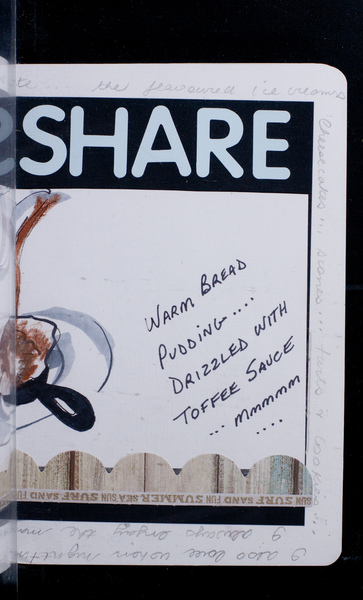 the flavoured ice creams
SHARE
Cheesecakes... scones... tarts & cookies...
WARM BREAD
PUDDING....
DRIZZLED WITH
TOFFEE SAUCE
... mmmmm
....
SUN SURF SAND FUN SUMMER SEA SUN SURF SAND FUN SUN
I always enjoy the
I also love when